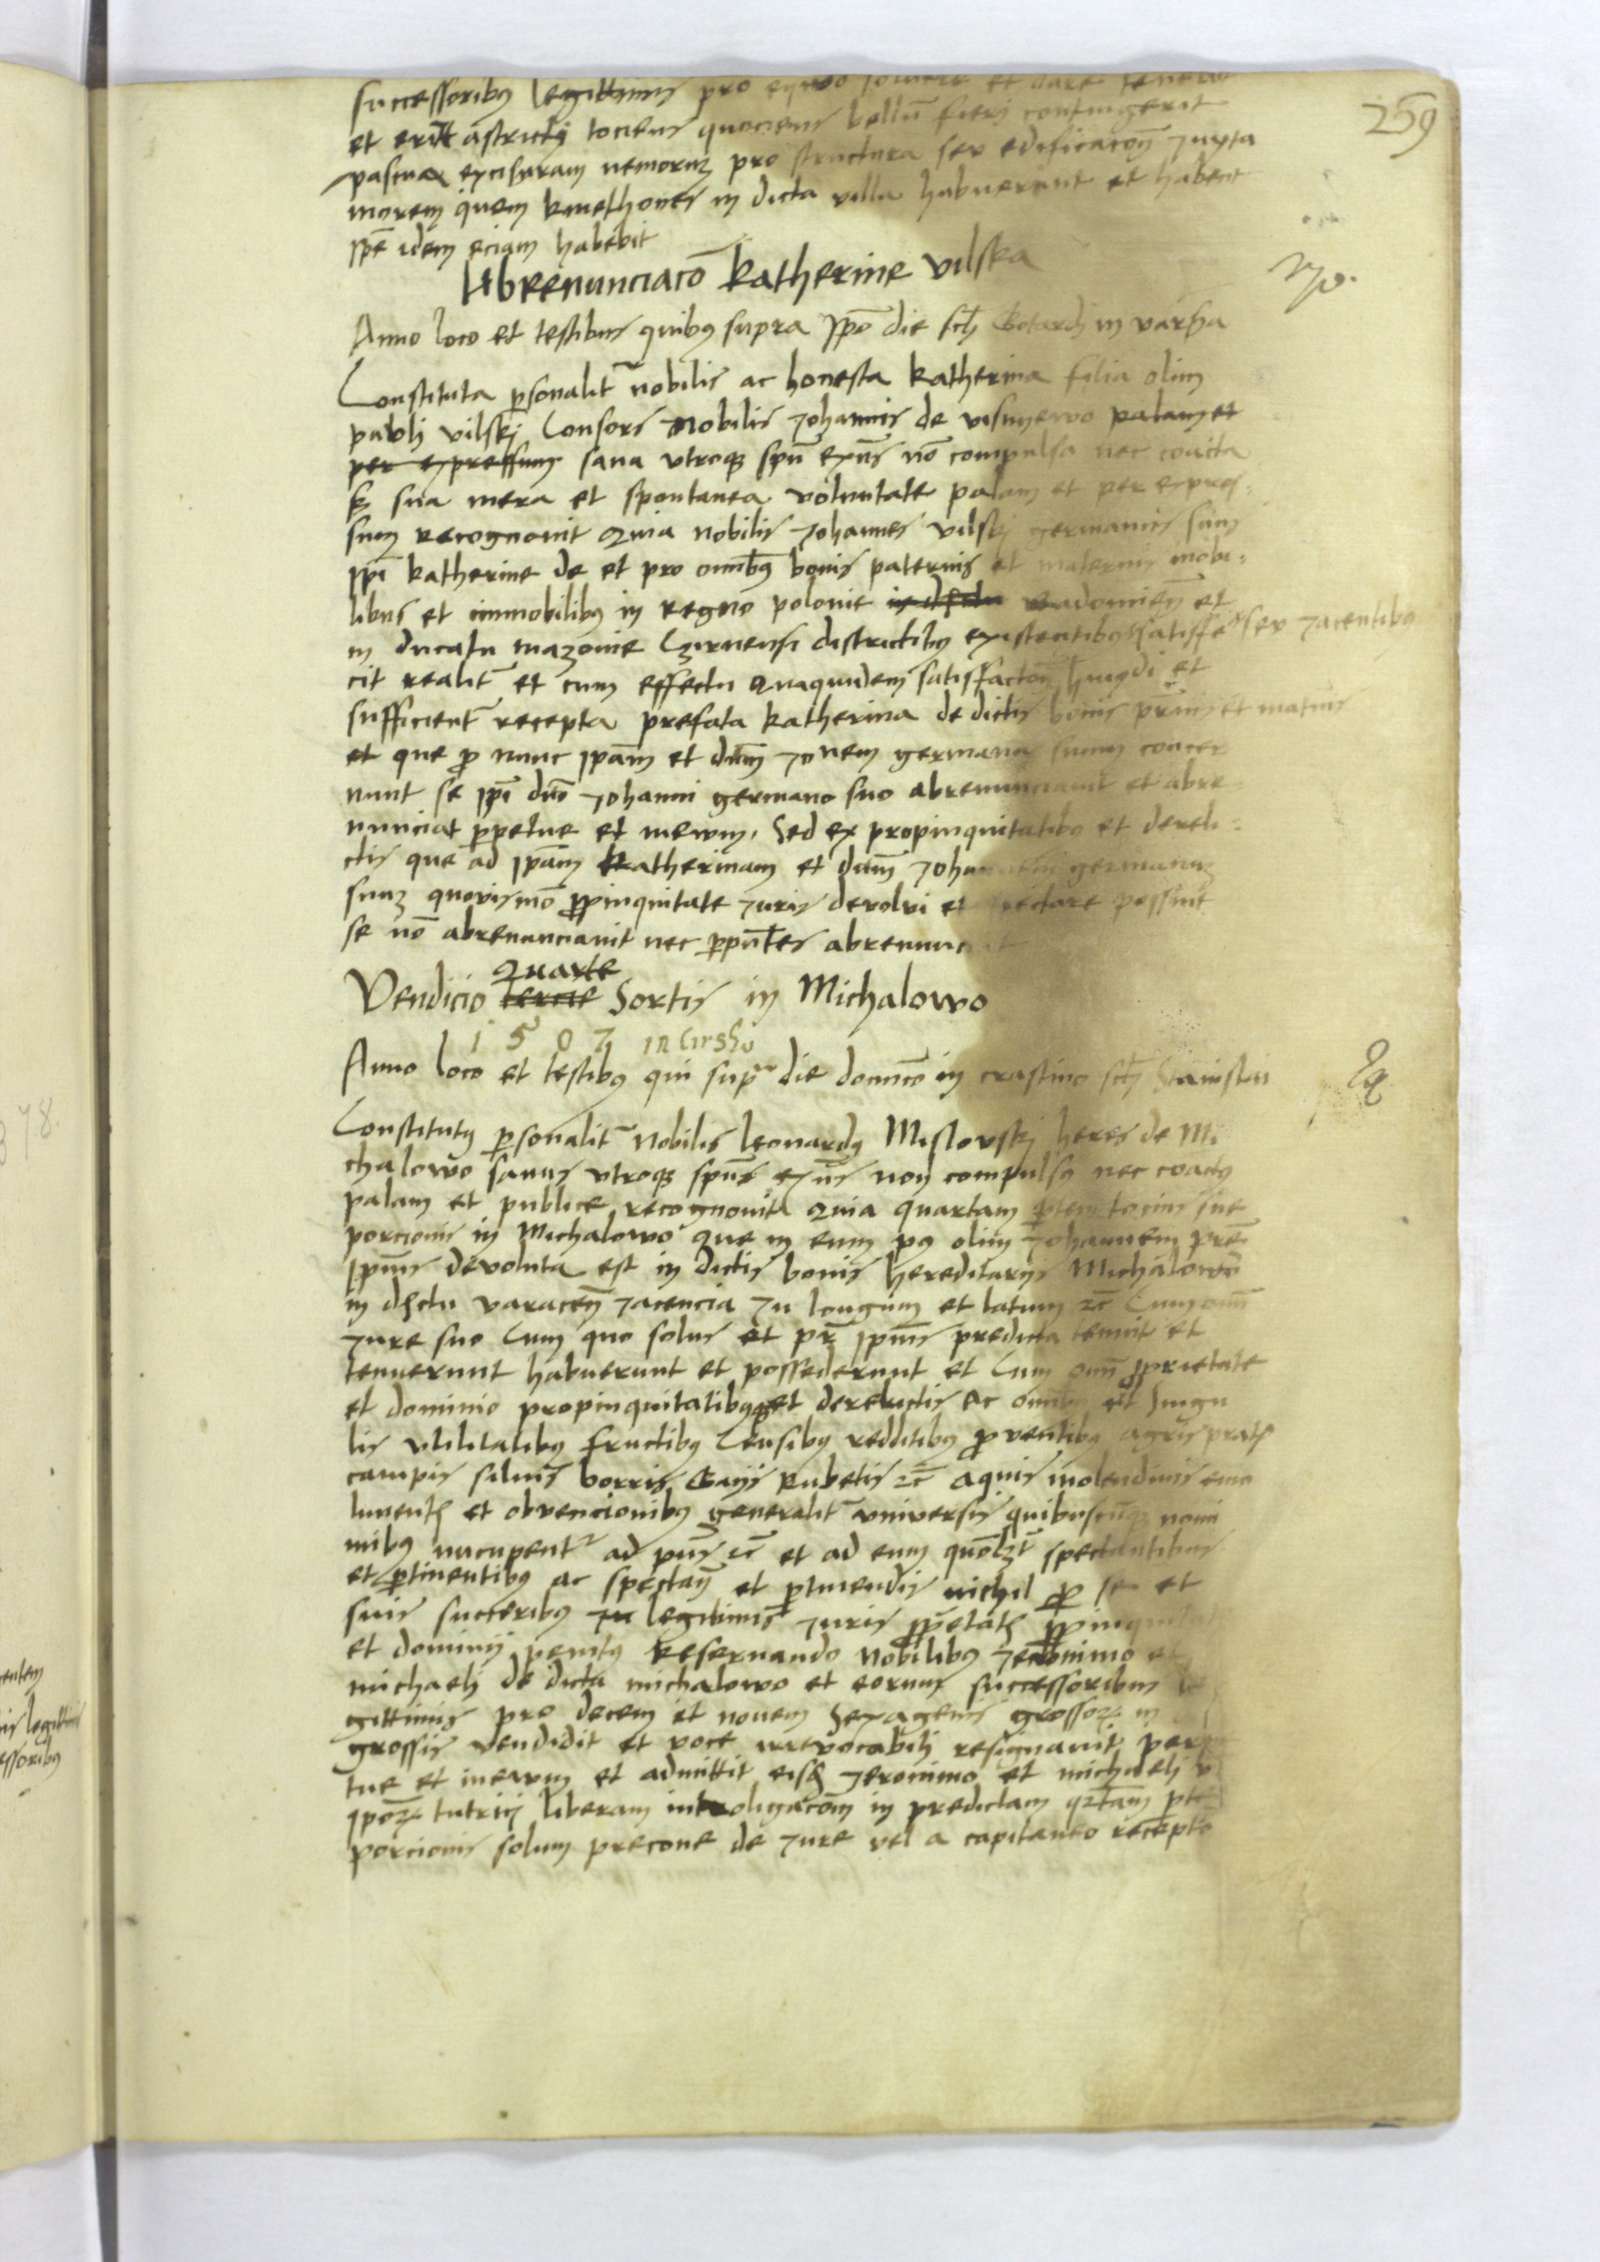 259
successoribus legittimis pro equo soluere et dare tenere
et erit astrictus tociens quociens bellū fieri contingerit
pascua excisuram nemorum pro structura seu edificacoē Juxta
morem quem kmethones in dicta villa habuerunt et habent
ipse idem eciam habebit
Abrenunciacō Katherine vilska
Anno loco et testibus quibus supra ipō die scti Gotardi in varsha
Constituta personaliter nobilis ac honesta Katherina filia olim
pauli vilskj Consors nobilis Johannis de visnyewo palam et
per expressum sana vtroque spū exns nō compulsa nec coacta
sʒ sua mera et spontanea voluntate palam et per expres-
sum recognouit Quia nobilis Johannes vilskj germanus suus
ipi Katherine de et pro omnibus bonis paternis et maternis mobi-
libus et immobilibus in regno polonie Radomien et
in ducatu mazouie Czirnensi districtibus existentibus satisfe seu Jacentibus
cit realiter et cum effectu Quaquidem satisfactoē huiqdi et
sufficienter recepta prefata Katherina de dictis bonis prnis et matnis
et que pro nunc ipam et dnm Jonem germanum suum concer
nunt se ipi dno Johanni germano suo abrenunciauit et abre
nunciat perpetue et in ewm. Sed ex propinquitatibus et dereli-
ctis que ad ipam Katherinam et dnm Johannem germanum
suum quouismō propinquitate Juris devolui et spectare possunt
se nō abrenunciauit nec per pntes abrenunciat
Quarte
Vendicio tercie Sortis in Michalowo
1507 in Cirsko
Anno loco et testibus qui supra die dominico in crastino scti Stanislai
Constitutus personaliter Nobilis leonardus Mislovskj heres de Mi
chalowo sanus vtroque spu exns non compulsus nec coactus
palam et publice recognouit Quia quartam partem tocius sue
porcionis in Michalowo que in eum per olim Johannem prem
ipius devoluta est in dictis bonis hereditariis Michalowo
in dstctu varacen Jacencia In longum et latum ꝛc Cum omni
Jure suo Cum quo solus et pr ipius predicta tenuit et
tenuerunt habuerunt et possederunt et Cum omni proprietate
et dominio propinquitatibus et derelictis Ac omnibus et singu
lis vtilitatibus fructibus Censibus redditibus prouentibus agris pratis
campis siluis borris Gaijs Rubetis ꝛc Aquis molendinis emo
lumentis et obvencionibus generaliter vniversis quibuscunque nomi
nibus nucupentur ad pns ꝛc et ad eum quomolibet spectantibus
et pertinentibus ac spectan et pertinendis nichil pro se et
suis succeribus legitimis Juris proprietatis propinquitat
et dominij penitus Reseruando Nobilibus Jeronimo et
michaeli de dicta michalowo et eorum successoribus le
gittimis pro decem et nouem Sexagenis grossorum in
grossis vendidit et voce irrevocabili resignauit perpe
tue et in ewm et admittit eisdem Jeronimo et michaeli v
ipōrum tutrici liberam introligacoēm in predictam qrtam ptē
porcionis solum precone de Jure vel a capitaneo recepto